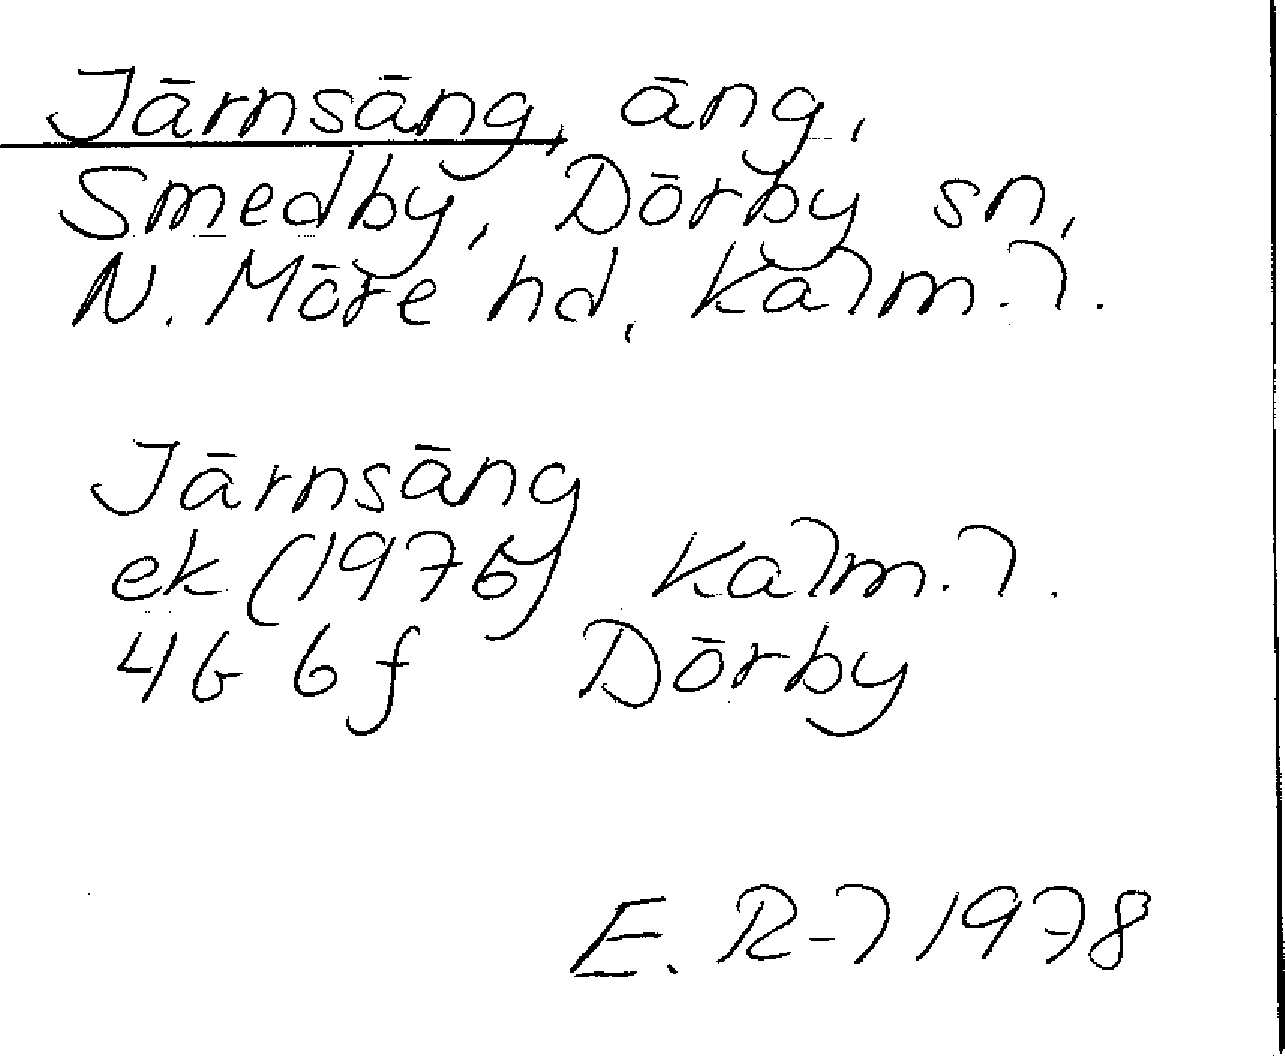 Järnsäng, äng,
Smedby, Dörby sn,
N. Möre hd, Kalm. l.
Järnsäng
ek (1976) Kalm. l.
4G 6f Dörby
E. R-l 1978